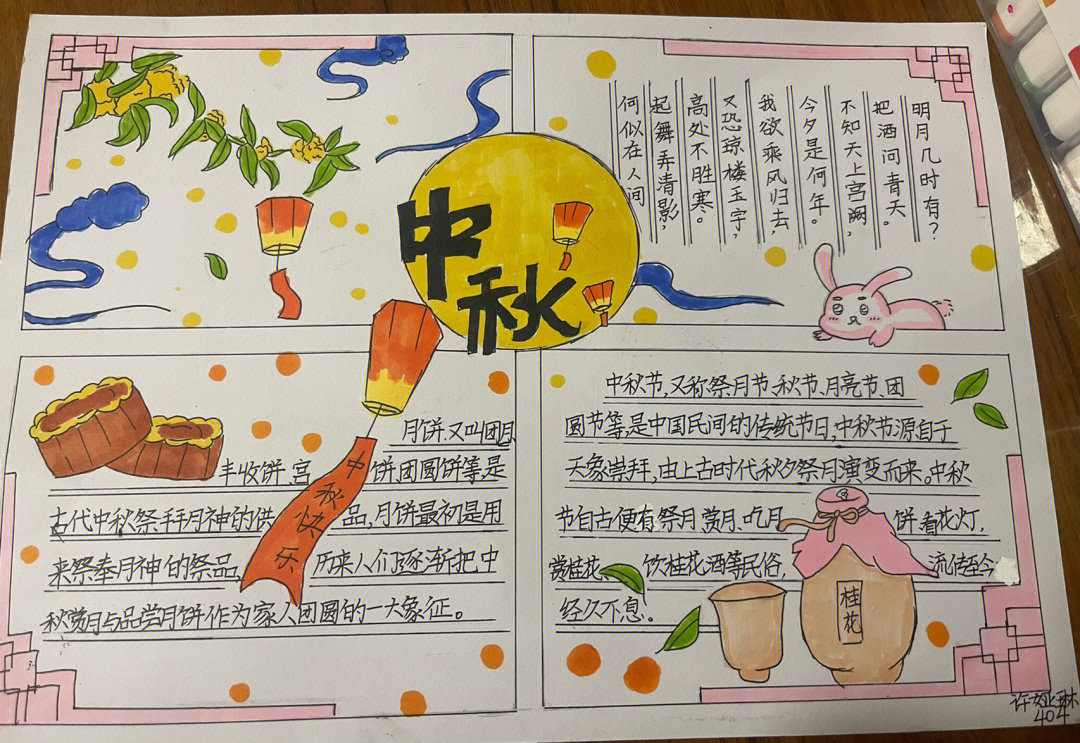 中秋
明月几时有?
把酒问青天。
不知天上宫阙,
今夕是何年。
我欲乘风归去,
又恐琼楼玉宇,
高处不胜寒。
起舞弄清影,
何似在人间
中秋快乐
月饼,又叫团月
丰收饼、宫饼团圆饼等,是
古代中秋祭拜月神的供品,月饼最初是用
来祭奉月神的祭品,历来人们逐渐把中
秋赏月与品尝月饼作为家人团圆的一大象征。
中秋节,又称祭月节、秋节、月亮节、团
圆节等,是中国民间的传统节日,中秋节源自于
天象崇拜,由上古时代秋夕祭月演变而来。中秋
节自古便有祭月、赏月、吃月饼、看花灯,
赏桂花、饮桂花酒等民俗,流传至今
经久不息。
桂花
404